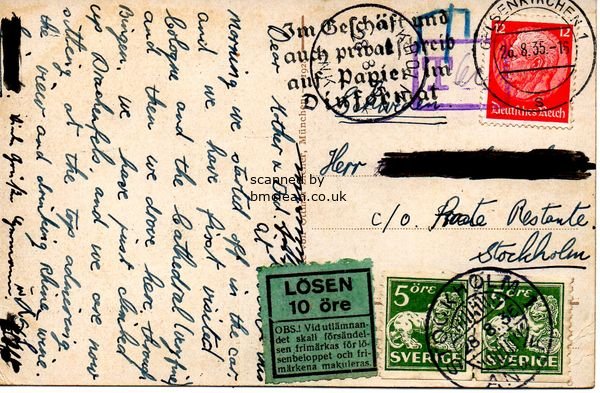 Im Geschäft und
auch privat schreib
auf Papier im
Dinformat
GELSENKIRCHEN 1
26.8.35.-1
12 12
Deutsches Reich
Herr
c/o Poste Restante.
Stockholm
scanned by
bmclean.co.uk
Dear Mother &
morning we started off in the car
and we have first visited
Cologne and the Cathedral (very fine)
and then we drove here through
Bingen. We have just climbed
up Drachenfels and we are now
sitting at the top admiring
the view and drinking Rhine wine.
Viele Grüße
LÖSEN
10 öre
OBS.! Vid utlämnan-
det skall försändel-
sen frimärkas för lö-
senbeloppet och fri-
märkena makuleras.
5 ÖRE
SVERIGE
5 ÖRE
SVERIGE
STOCKHOLM